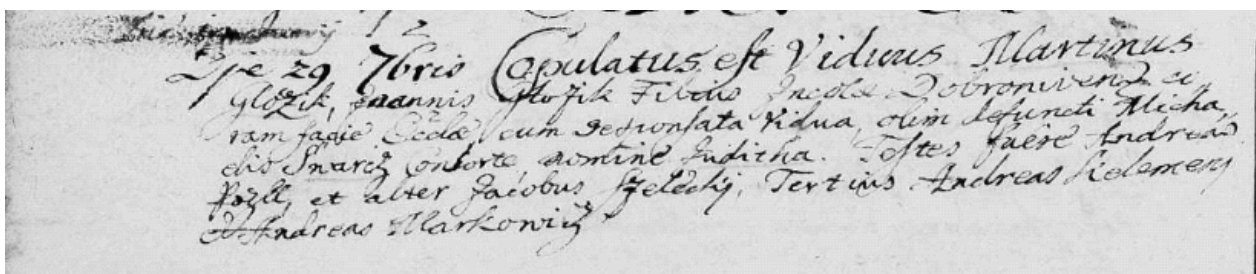 Die 29 7bris Copulatus est Viduus Martinus
Glozik, Joannis Glozik Filius Incola Dobronivens co
ram facie Ecclæ, cum desponsata vidua, olim defuncti Micha,,
elis Snarcz Consorte nomine Juditha. Testes fuere Andreas
et alter Jacobus Szeleckij, Tertius Andreas Kelemen
et Andreas Markowicz